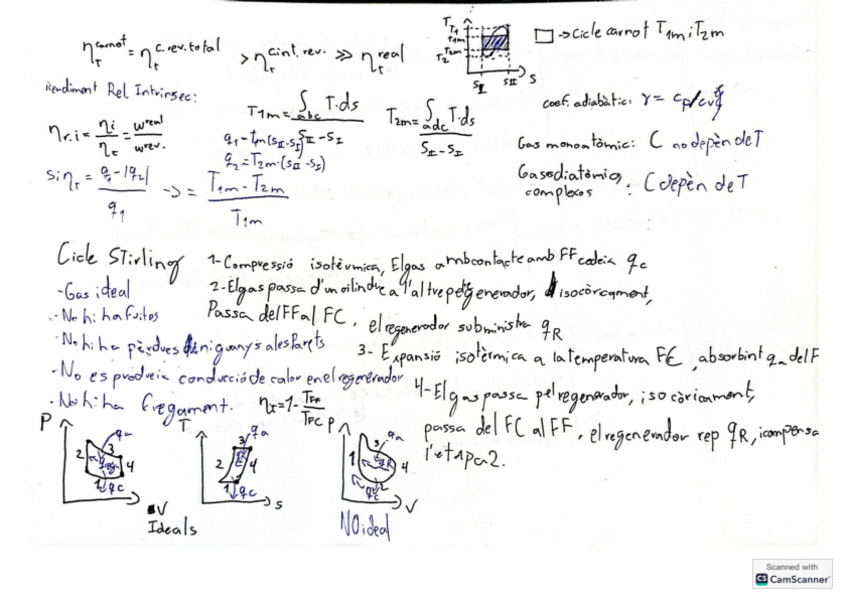 η_t^carnot = η_t^c.rev.total > η_t^c.int.rev. >> η_t^real
T
T1
T1m
T2m
T2
S_I S_II S
□ → Cicle carnot T1m i T2m
Rendiment Rel Intrínsec:
η_r.i = η_i / η_t = w^real / w^rev.
T1m = ∫_abc T·ds / S_II - S_I
T2m = ∫_adc T·ds / S_II - S_I
coef. adiabàtic: γ = cp/cv
q1 = Tm(S_II - S_I)
q2 = T2m·(S_II - S_I)
Gas monoatòmic: C no depèn de T
Si η_t = q1 - |q2| / q1 → = T1m - T2m / T1m
Gas diatòmic, complexos : C depèn de T
Cicle Stirling
- Gas ideal
- No hi ha fuites
- No hi ha pèrdues ni guanys a les parets
- No es produeix conducció de calor en el regenerador
- No hi ha fregament.
η_t = 1 - T_FF / T_FC
1- Compressió isotèrmica, El gas amb contacte amb FF cedeix qc
2- El gas passa d'un cilindre a l'altre pel regenerador, isocòricament,
Passa del FF al FC, el regenerador subministra qR
3- Expansió isotèrmica a la temperatura FC, absorbint qa del F
4- El gas passa pel regenerador, isocòricament,
passa del FC al FF, el regenerador rep qR, i compensa
l'etapa 2.
P qa 2 3 4 1 qc V
T qa 3 2 4 1 qc S
Ideals
P qa 3 1 qR 4 2 qc V
NO ideal
Scanned with
CS CamScanner